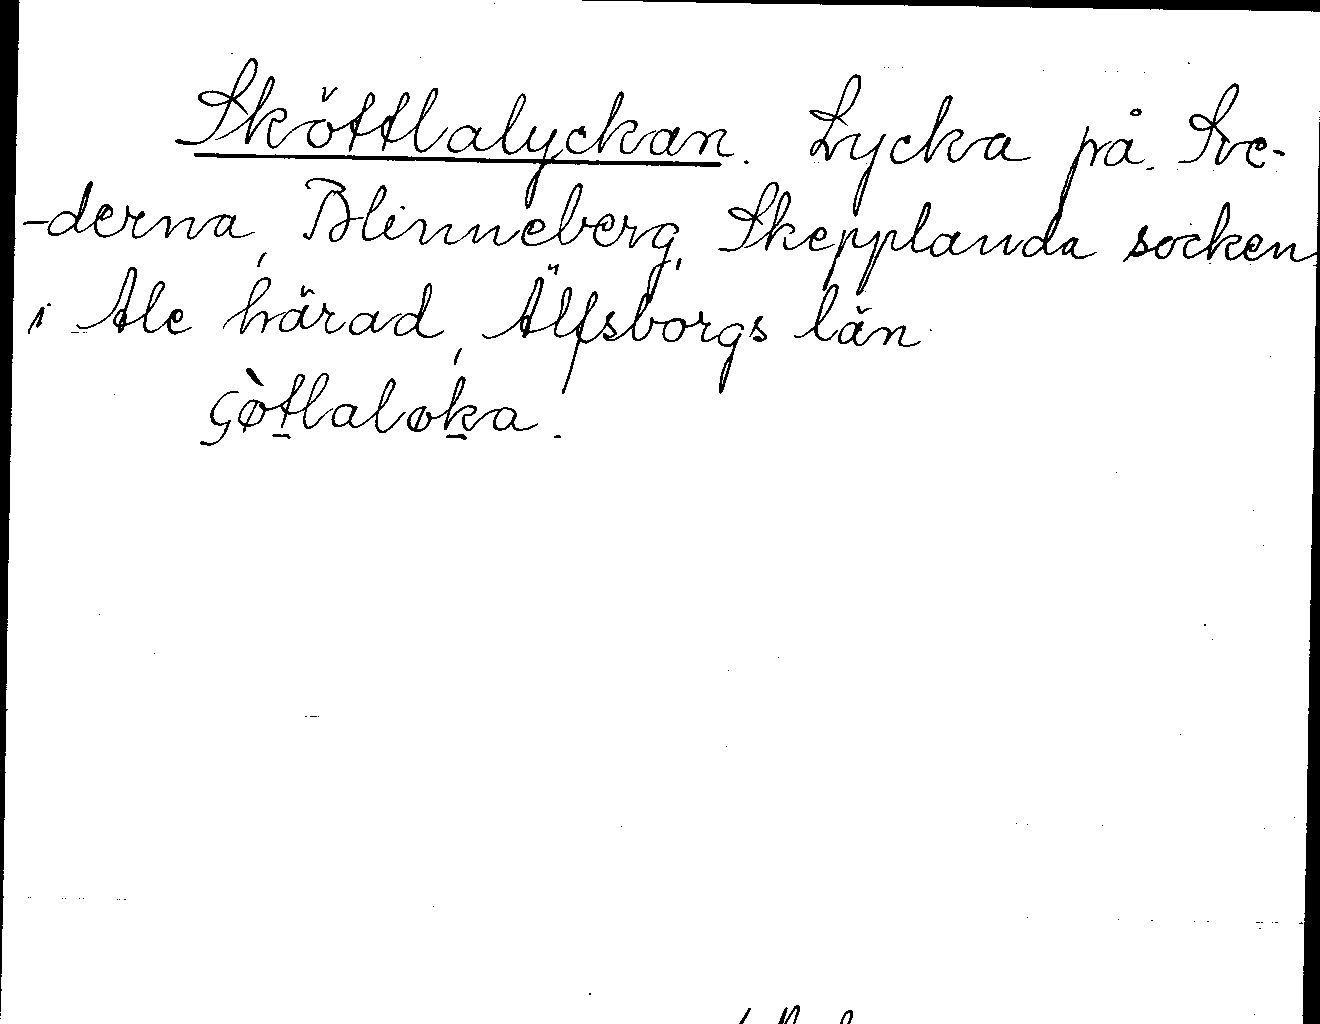 Sköttlalyckan. Lycka på Sve-
-derna, Blinneberg, Skepplanda socken
i Ale härad, Älfsborgs län
çø̀t̠laløk̠a.